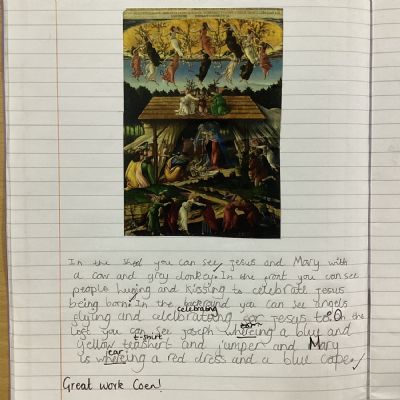 In the shed you can see, Jesus and Mary with
a cow and grey donkey. In the front you can see
people huging and kissing to celebrate Jesus
being born. In the backround you can see angels
celebrating
flying and celebratoing for Jesus to. On the
torn
left you can see Joseph whereing a blue and
t-shirt
yellow teashert and jumper and Mary
ear
is whereing a red dress and a blue cape.
Great work Coen!